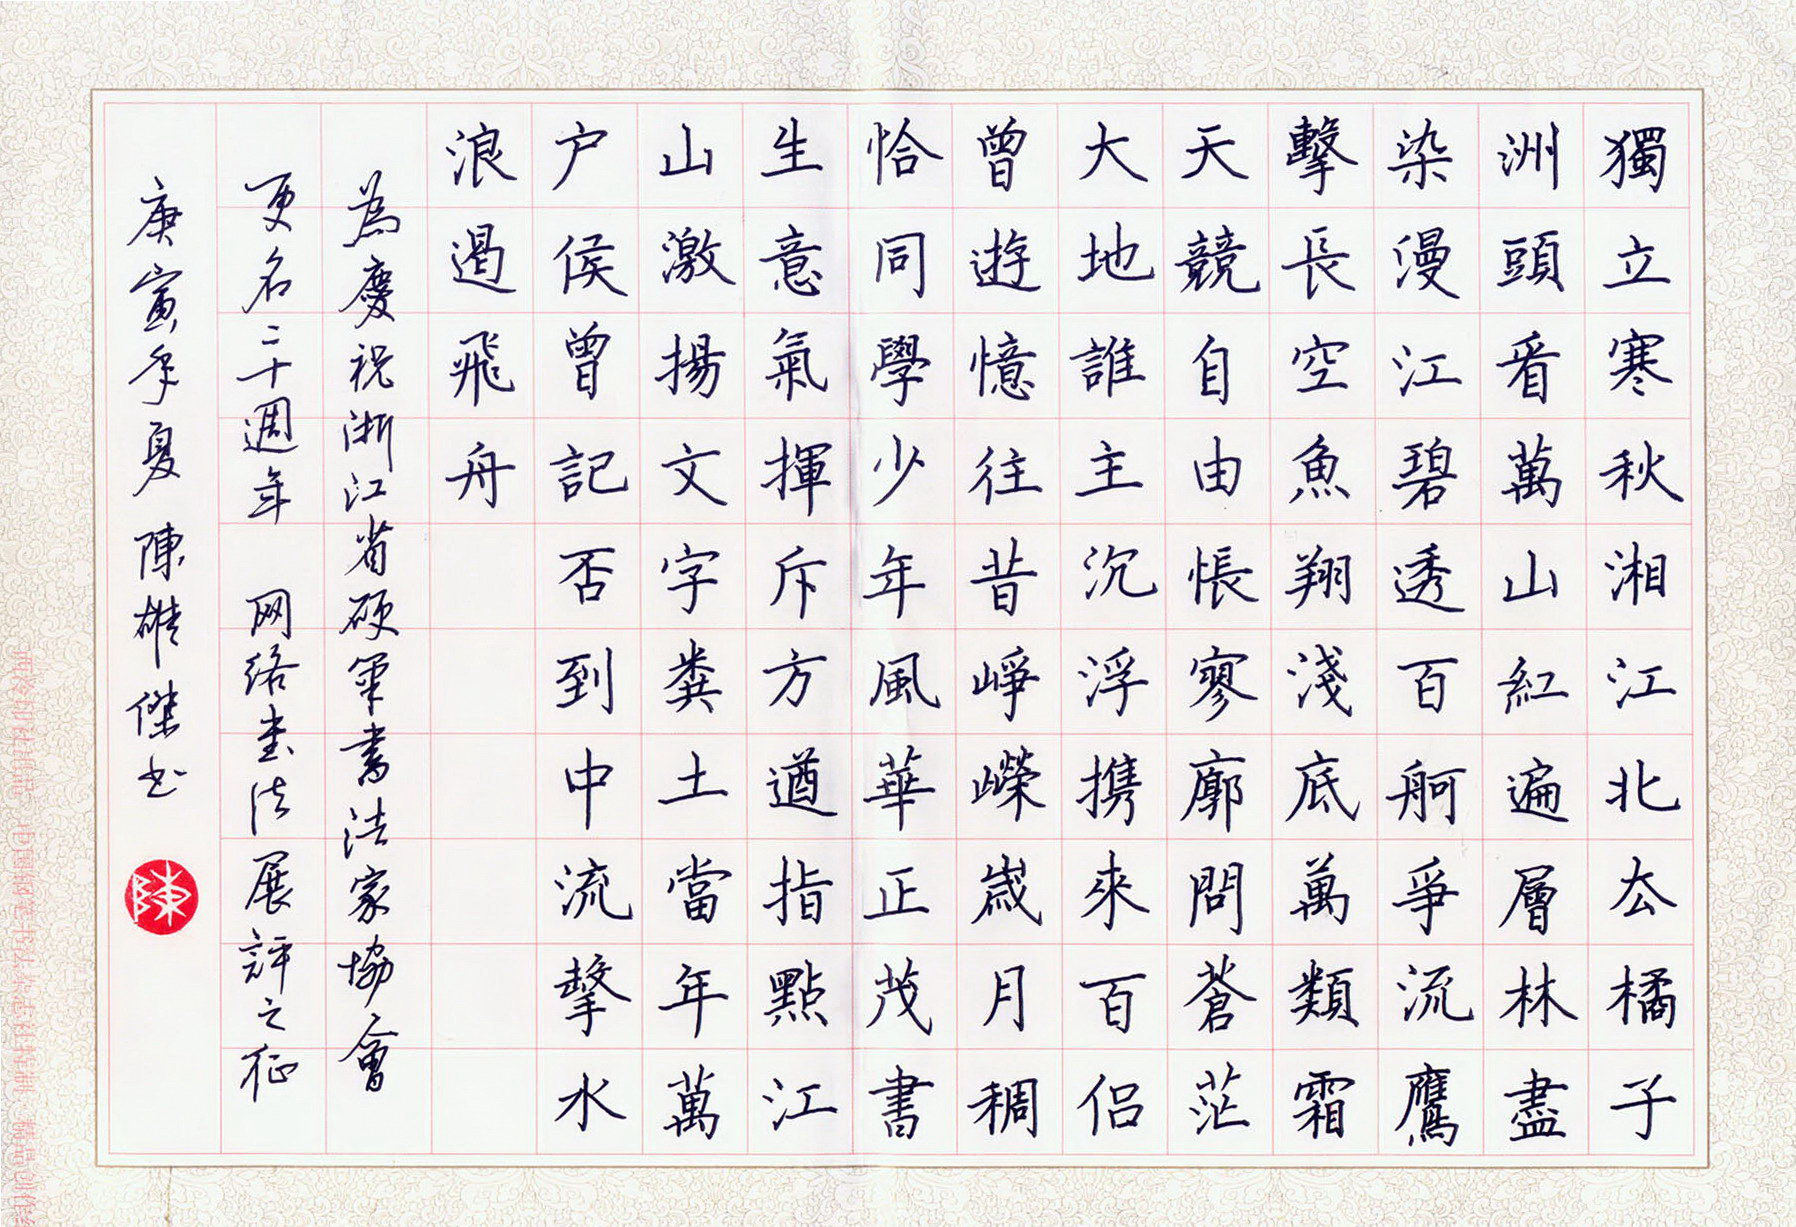 獨立寒秋湘江北厺橘子
洲頭看萬山紅遍層林盡
染漫江碧透百舸爭流鷹
擊長空魚翔淺底萬類霜
天競自由悵寥廓問蒼茫
大地誰主沉浮携來百侶
曾遊憶往昔崢嶸歲月稠
恰同學少年風華正茂書
生意氣揮斥方遒指點江
山激揚文字糞土當年萬
户侯曾記否到中流擊水
浪遏飛舟
為慶祝浙江省硬筆書法家協會
更名二十週年 网络書法展評之征
庚寅年夏 陳雄傑书
陳